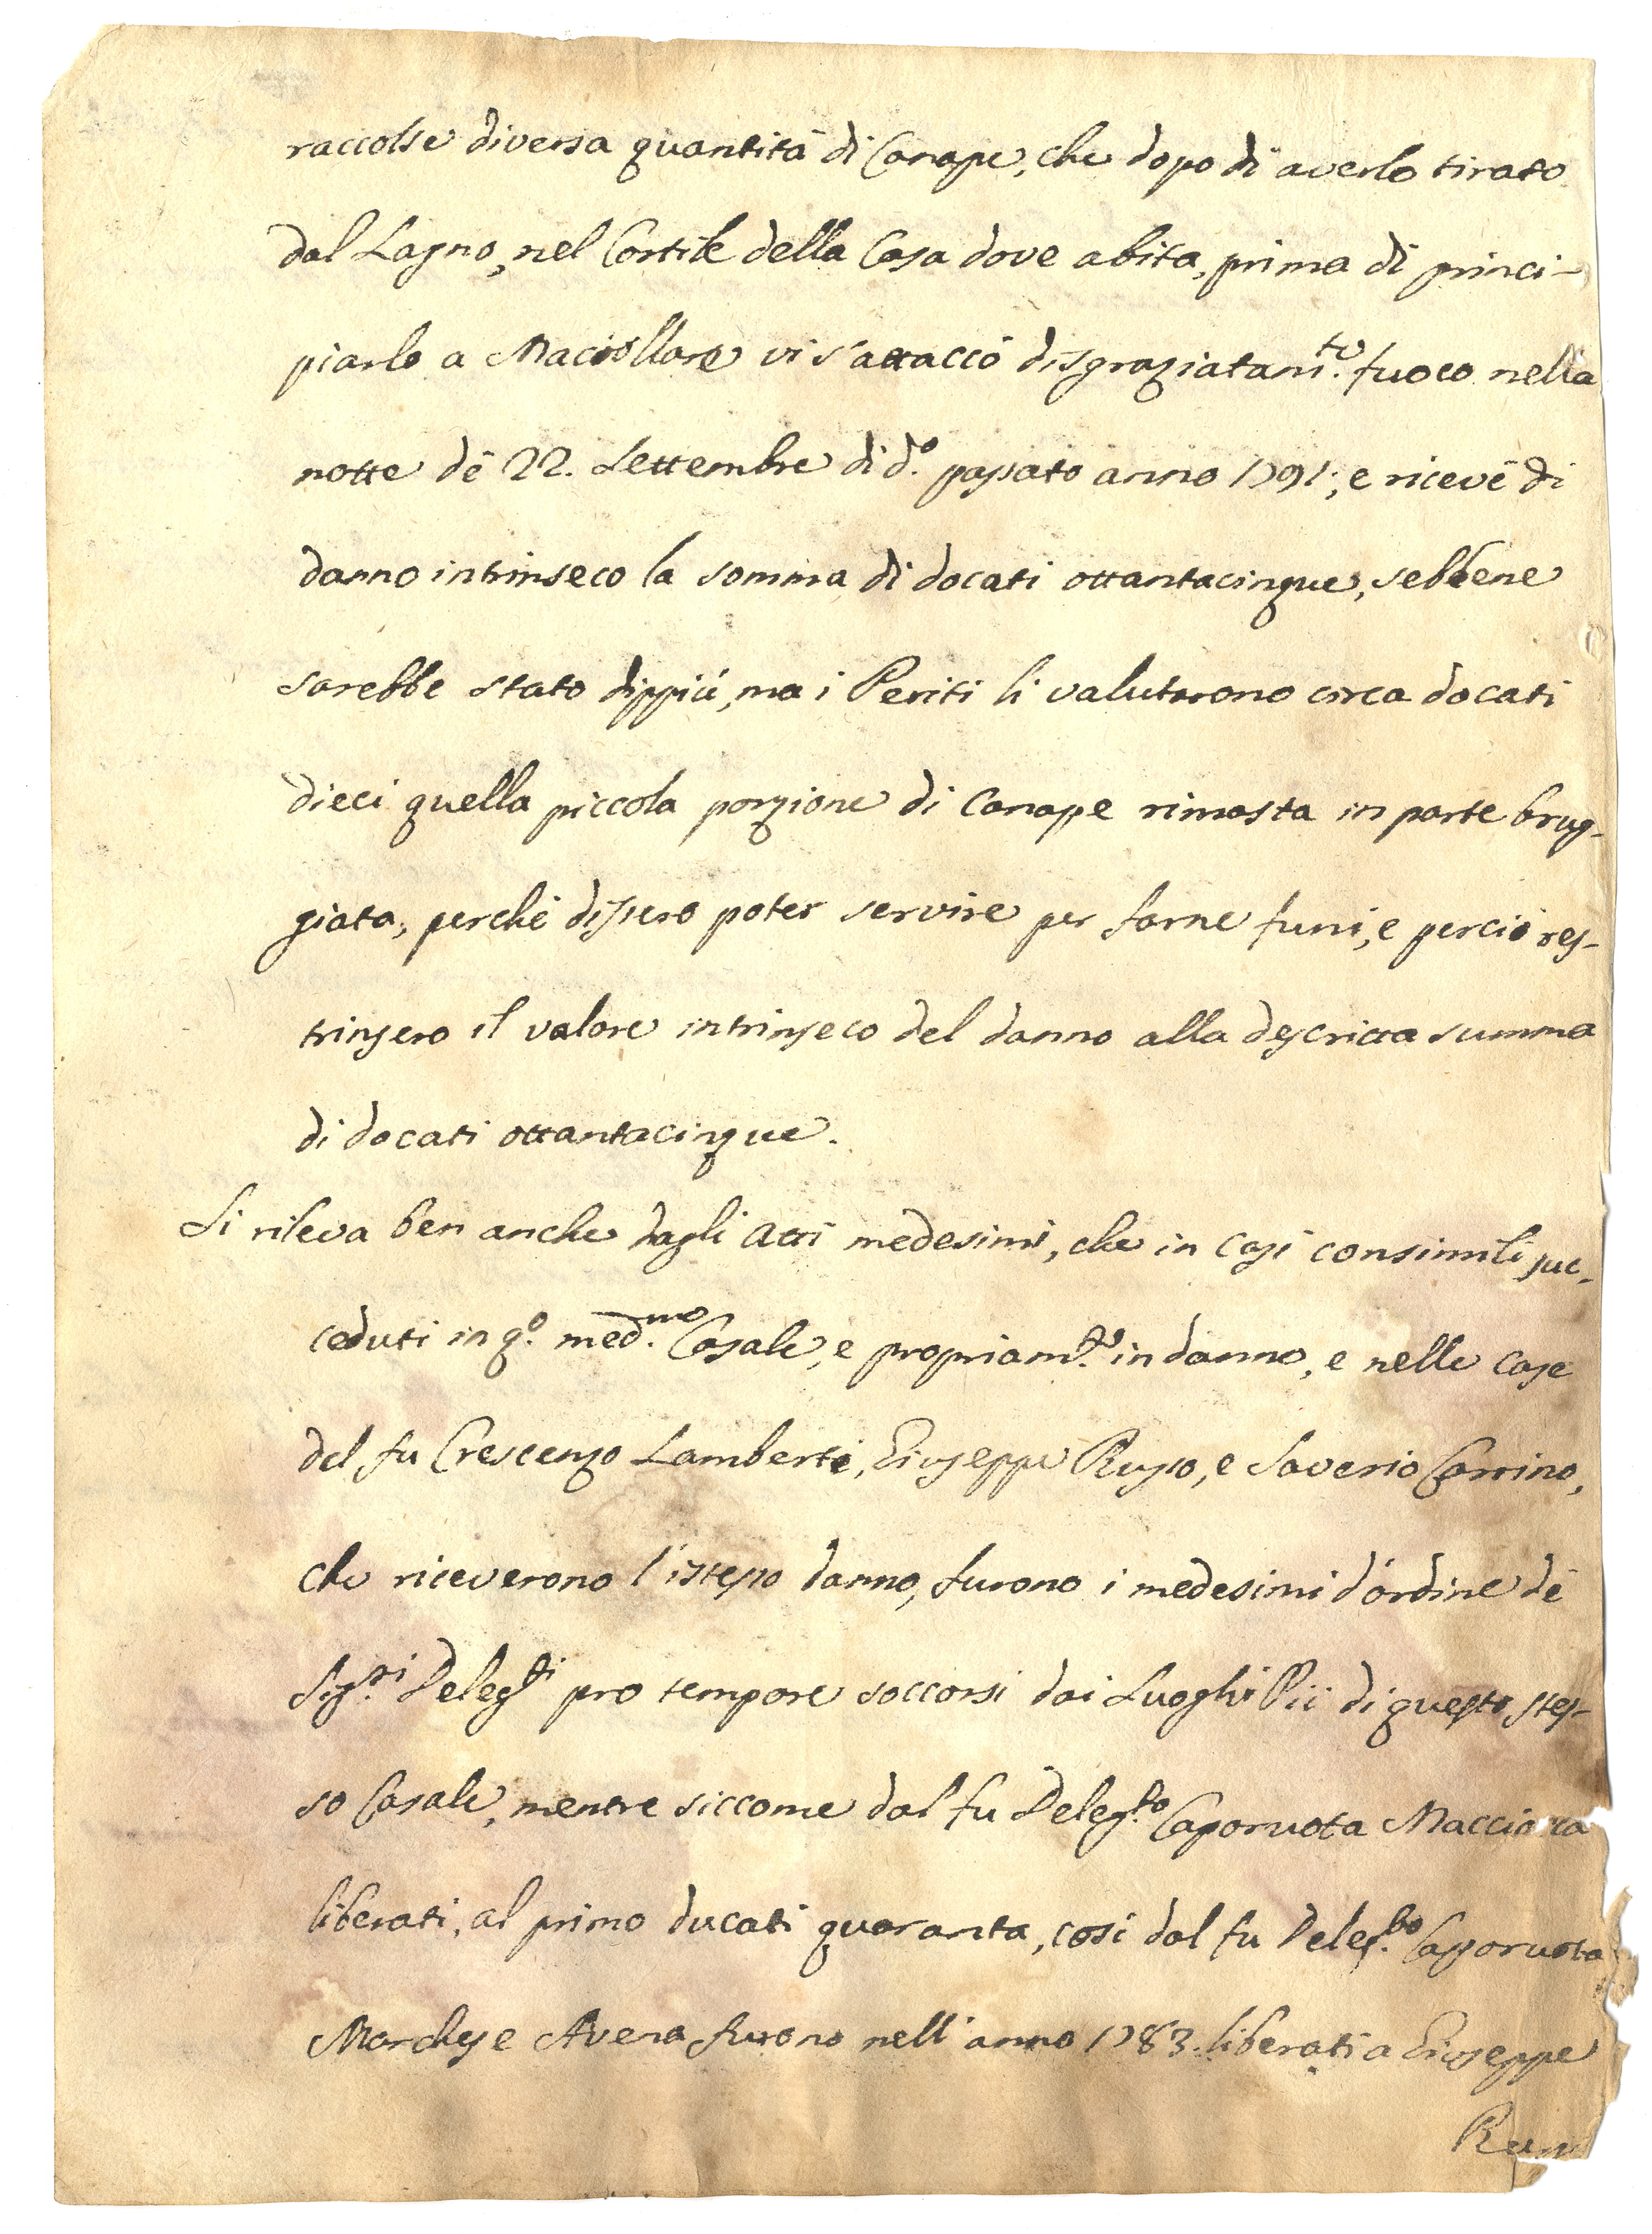 raccolse diversa quantità di Canape, che dopo di averlo tirato
dal Lagno, nel Cortile della Casa dove abita, prima di princi-
piarlo a Maciollare vi s'attaccò disgraziatam.te fuoco nella
notte dè 22. Settembre di d.o passato anno 1791; e ricevè di
danno intrinseco la somma di docati ottantacinque, sebbene
sarebbe stato dippiù, ma i Periti li valutorono circa docati
dieci quella piccola porzione di Canape rimasta in parte brug-
giata, perchè dissero poter servire per farne funi, e perciò res-
trinsero il valore intrinseco del danno alla descritta summa
di docati ottantacinque.
Si rileva ben anche dagli atti medesimi, che in casi consimili suc-
ceduti in q.o med.mo Casale, e propriam.te in danno, e nelle case
del fu Crescenzo Lamberti, Giuseppe Russo, e Saverio Carrino,
che riceverono l'istesso danno, furono i medesimi d'ordine dè
Sig.ri Deleg.ti pro tempore soccorsi dai Luoghi Pii di questo stes-
so Casale, mentre siccome dal fu Deleg.to Caporuota
liberati, al primo ducati quaranta, così dal fu Deleg.to Caporuota
Marchese Avena furono nell'anno 1783. liberati a Giuseppe
Russo